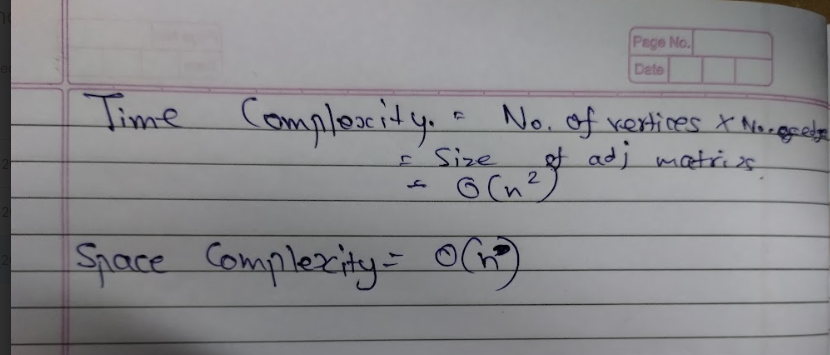 Page No.
Date
Time Complexity. = No. of vertices x No. of edge
= Size of adj matrix.
= O(n²)
Space Complexity = O(n)